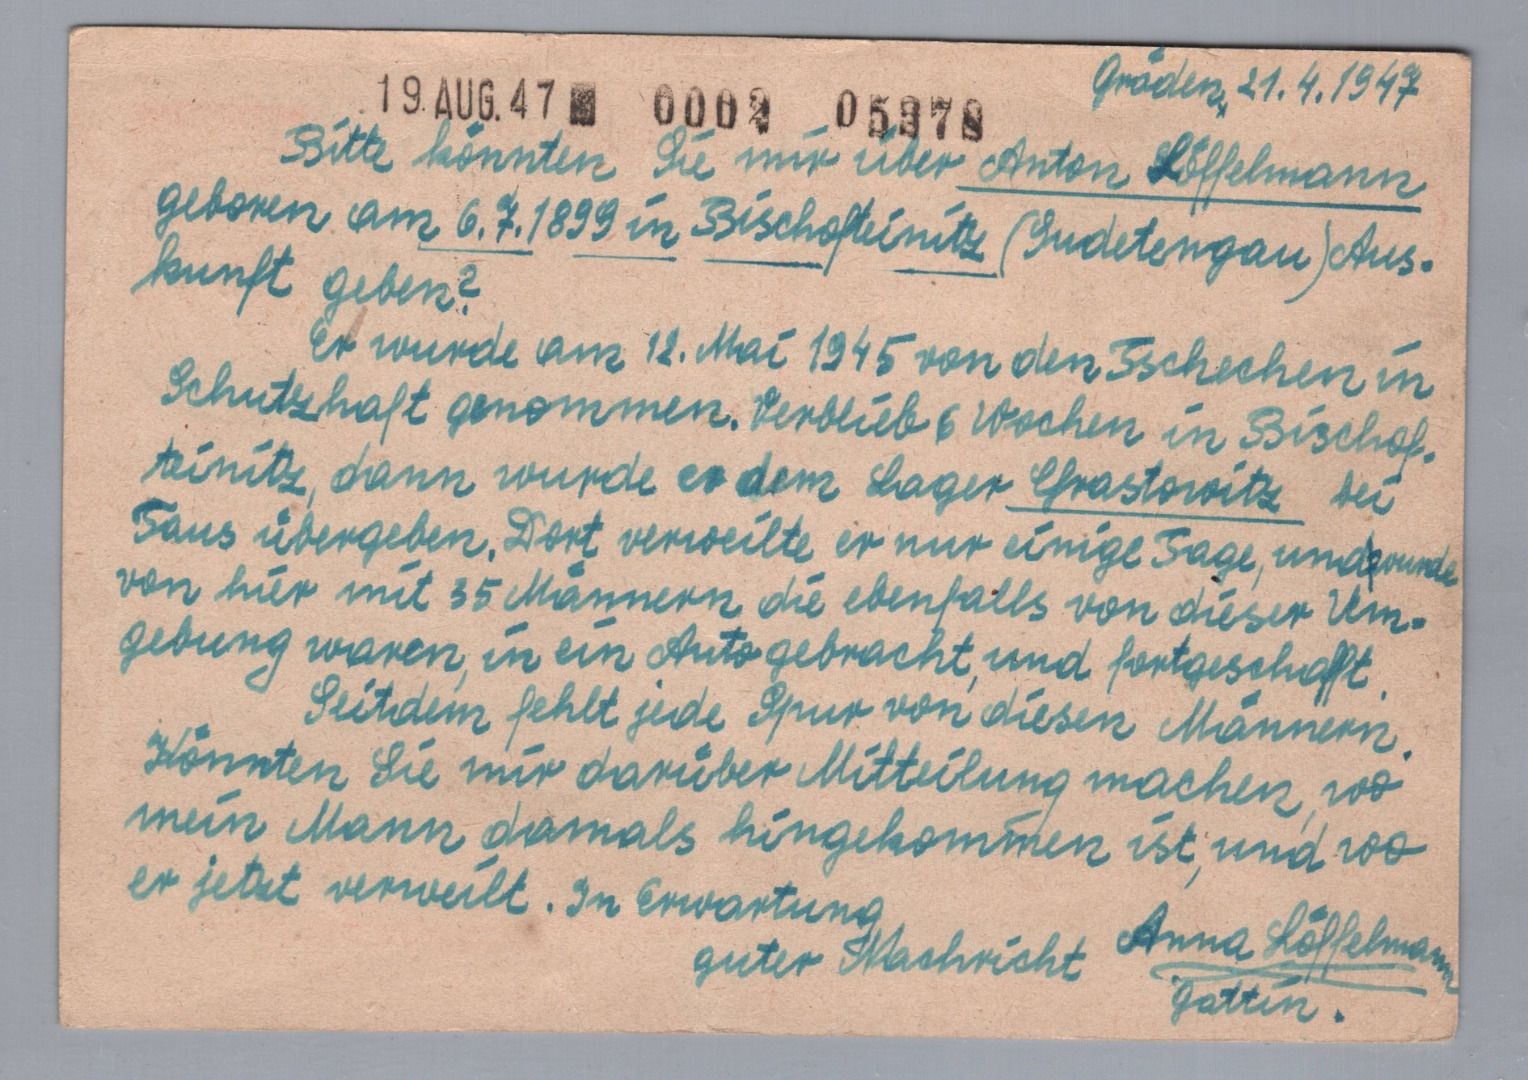 Gröden, 21.4.1947
19. AUG. 47 0002 05378
Bitte könnten Sie mir über Anton Löffelmann
geboren am 6.7.1899 in Bischofteinitz (Sudetengau) Aus-
kunft geben?
Er wurde am 12. Mai 1945 von den Tschechen in
Schutzhaft genommen. Verblieb 6 Wochen in Bischof-
teinitz, dann wurde er dem Lager Chrastowitz bei
Taus übergeben. Dort verweilte er nur einige Tage, und wurde
von hier mit 35 Männern die ebenfalls von dieser Um-
gebung waren, in ein Auto gebracht, und fortgeschafft.
Seitdem fehlt jede Spur von diesen Männern.
Könnten Sie mir darüber Mitteilung machen, wo
mein Mann damals hingekommen ist, und wo
er jetzt verweilt. In Erwartung
guter Nachricht Anna Löffelmann
Gattin.